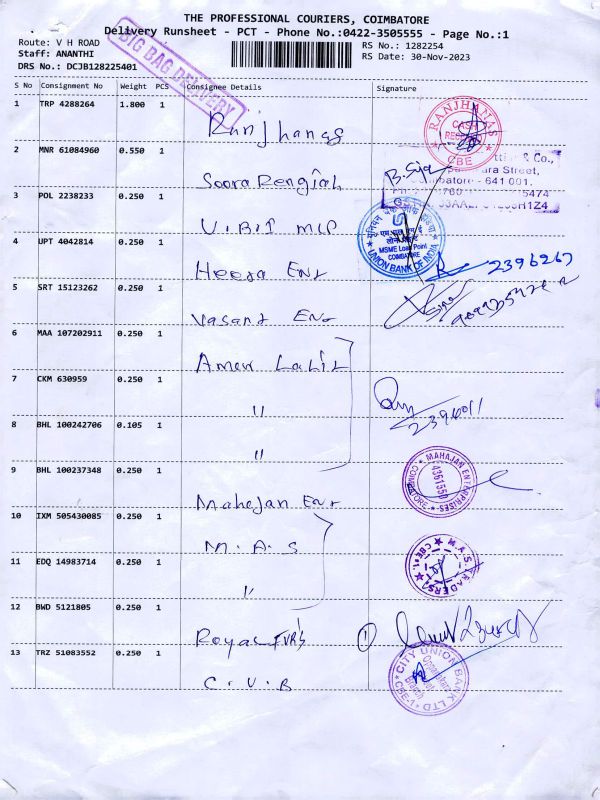 THE PROFESSIONAL COURIERS, COIMBATORE
Delivery Runsheet - PCT - Phone No.:0422-3505555 - Page No.:1
Route: V H ROAD
Staff: ANANTHI
DRS No.: DCJB128225401
BIG BAG DELIVERY
RS No.: 1282254
RS Date: 30-Nov-2023
S No Consignment No Weight PCS Consignee Details Signature
1 TRP 4288264 1.800 1 Ranjhanas
RANJHANAS
CBE
2 MNR 61084960 0.550 1 Soora Rengiah
& Co.,
Street,
- 641 001.
3 POL 2238233 0.250 1 U.B.I MLP
UNION BANK OF INDIA
MSME Loan Point
COIMBATORE
4 UPT 4042814 0.250 1 Heera Enr
2396267
5 SRT 15123262 0.250 1 Vasant Enr
6 MAA 107202911 0.250 1 Amer Lalil
7 CKM 630959 0.250 1 "
2396011
8 BHL 100242706 0.105 1 "
9 BHL 100237348 0.250 1 Mahejan Enr
MAHAJAN ENTERPRISES
COIMBATORE
4361550
10 IXM 505430085 0.250 1 M.A.S
11 EDQ 14983714 0.250 1 "
M.A.S TRADERS
CBE-1.
12 BWD 5121805 0.250 1 Royal FUR'S
1
13 TRZ 51083552 0.250 1 C.U.B
CITY UNION BANK LTD
CBE-1
Branch